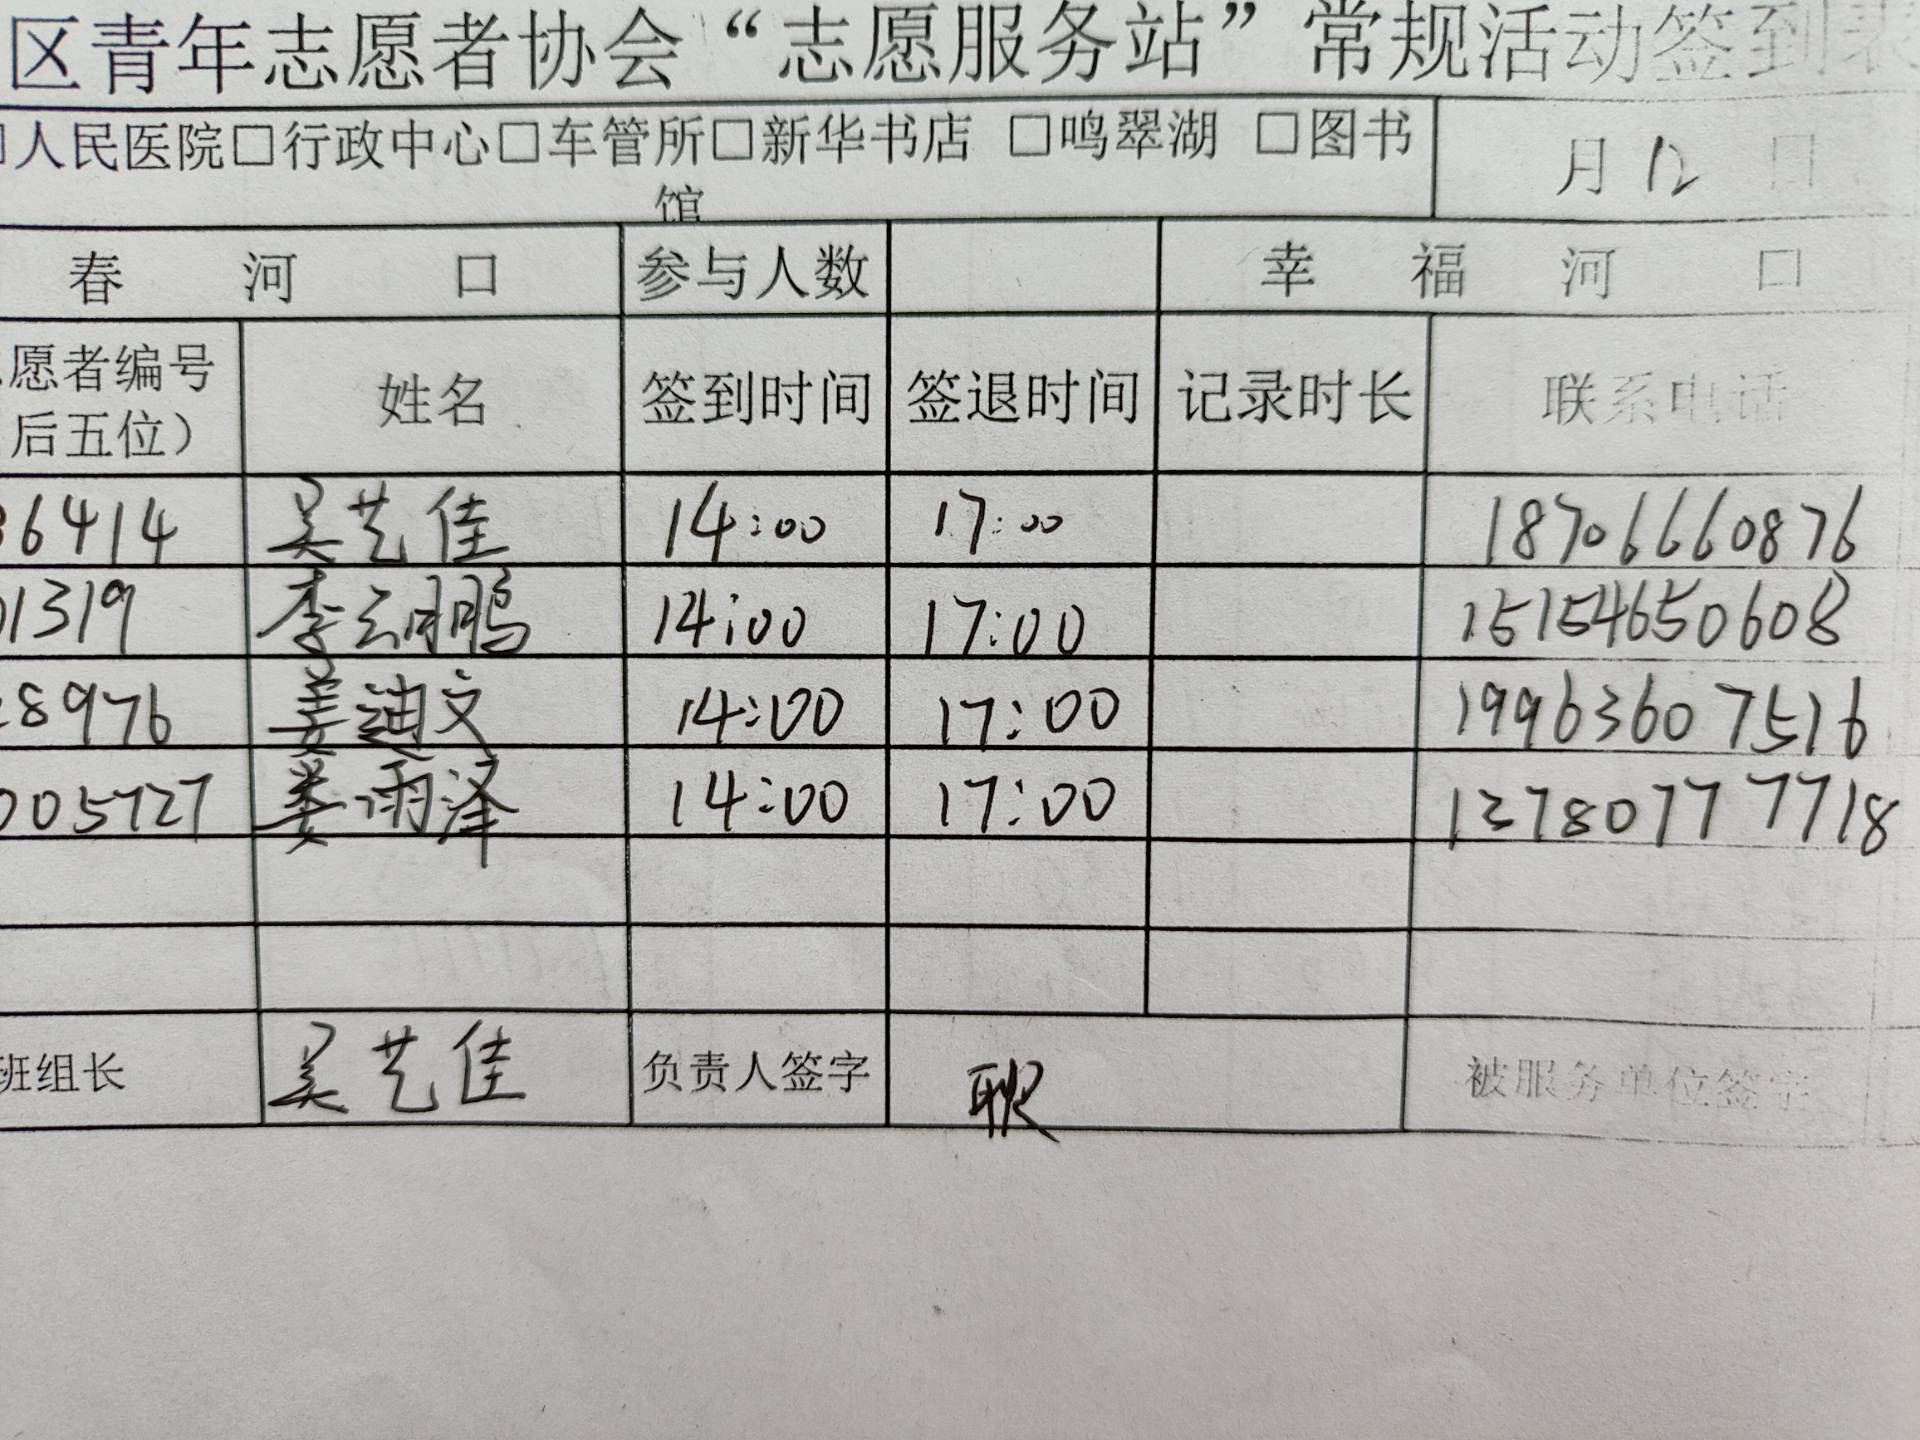 区青年志愿者协会“志愿服务站”常规活动签到表
□人民医院□行政中心□车管所□新华书店 □鸣翠湖 □图书馆
月 12 日
春 河 口 参与人数 幸 福 河 口
愿者编号 姓名 签到时间 签退时间 记录时长 联系电话
后五位）
36414 吴艺佳 14:00 17:00 18706660876
01319 李云鹏 14:00 17:00 15154650608
28976 姜迪文 14:00 17:00 19963607516
005727 娄雨泽 14:00 17:00 13780777718
班组长 吴艺佳 负责人签字 被服务单位签字